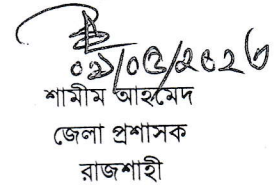 ০৯/০৩/২০২৩
শামীম আহমেদ
জেলা প্রশাসক
রাজশাহী